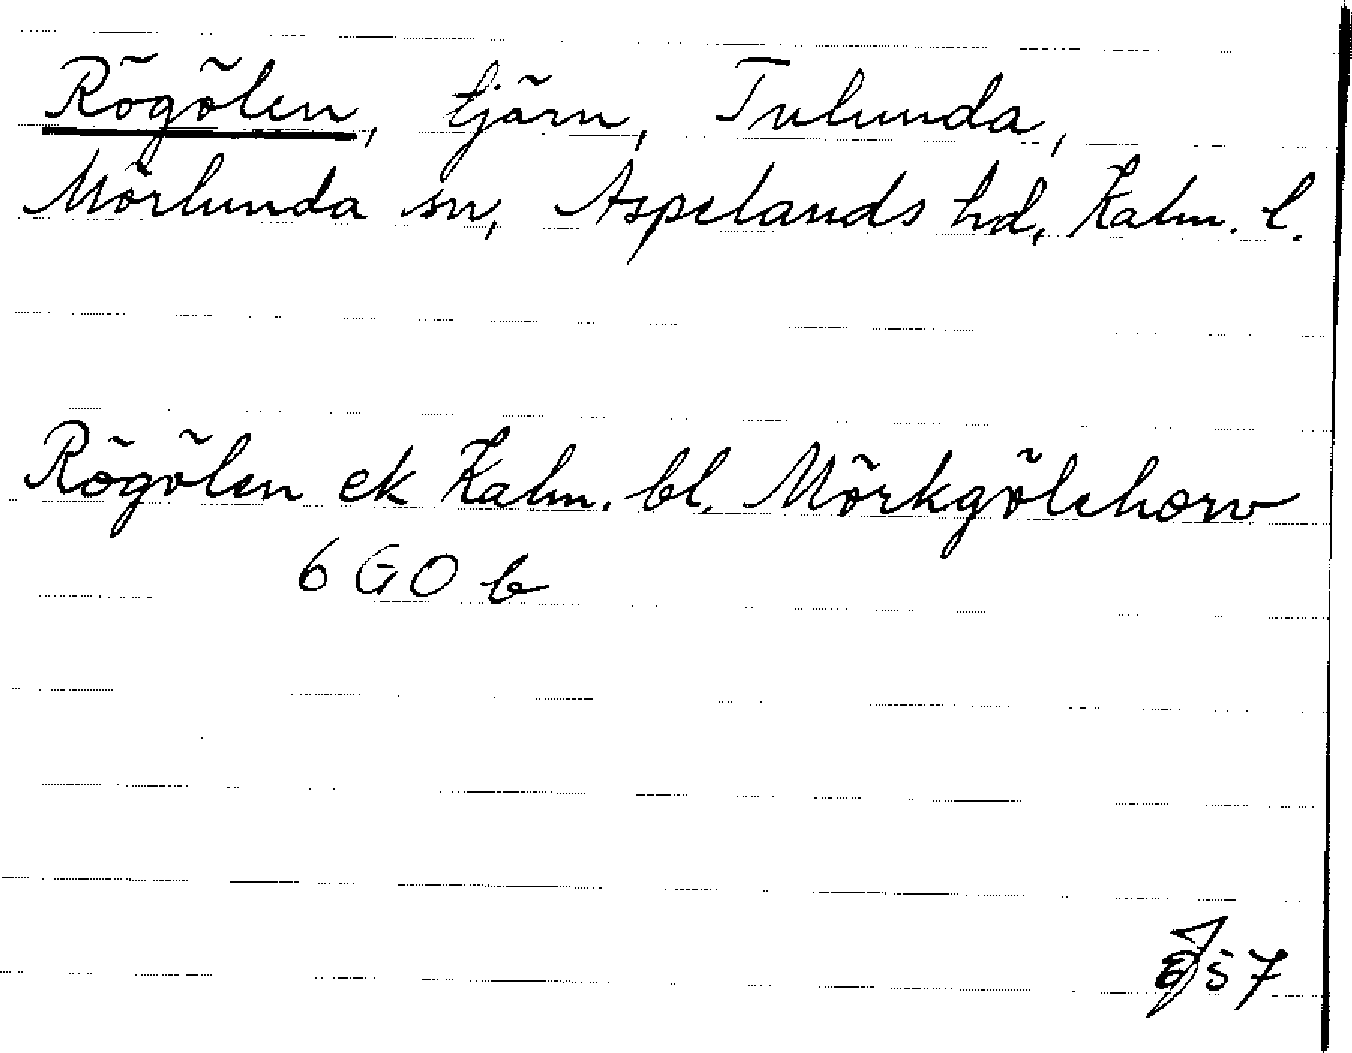 Rögölen, tjärn, Tulunda,
Mörlunda sn, Aspelands hd, Kalm. l.
Rögölen ek Kalm. bl. Mörkgölehorv
6 GO b
57